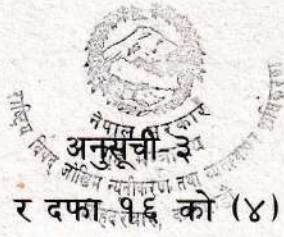 नेपाल सरकार
राष्ट्रिय विपद् जोखिम न्यूनीकरण तथा व्यवस्थापन प्राधिकरण
अनुसूची-३
र दफा १६ को (४)